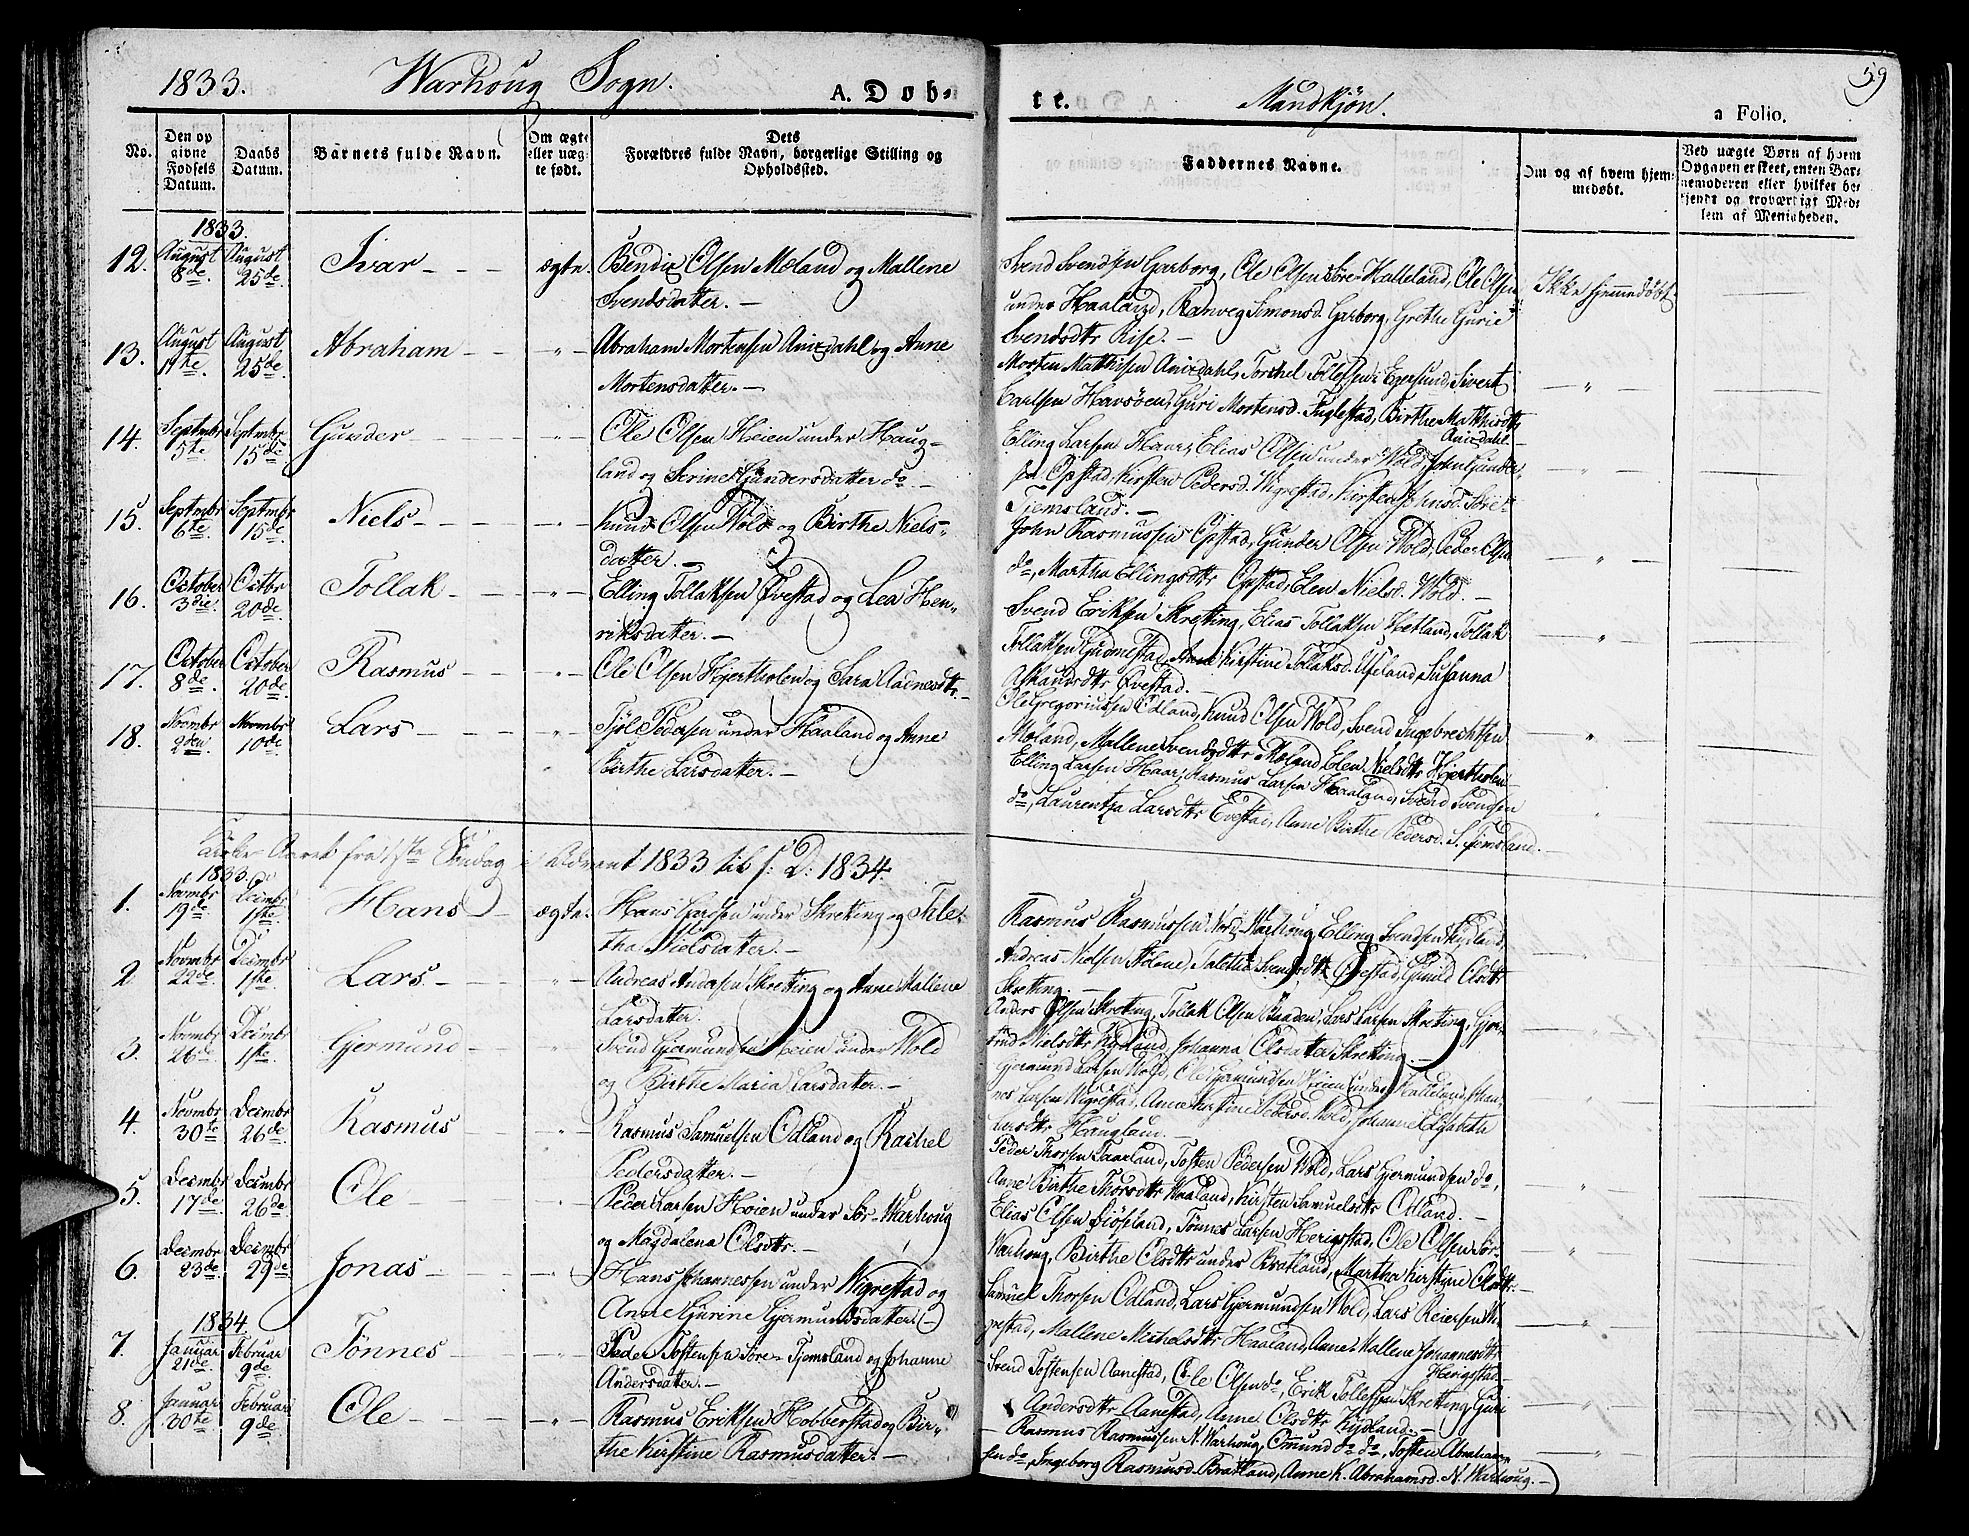 1833. Warhoug Sogn. A. Døb-
te. Mandkjøn. a Folio. 59
No. Den opgivne Fødsels Datum. Daabs Datum. Barnets fulde Navn. Om ægte eller uægte født. Dets Forældres fulde Navn, borgerlige Stilling og Opholdssted.
Faddernes Navne. Om og af hvem hjemmedøbt. Ved uægte Børn af hvem Opgaven er skeet, enten Barnemoderen eller hvilket betjent og troværdigt Medlem af Menigheden.
1833.
12. August 8de August 25de Ivar - - - ægte. Bendix Olsen Moland og Mallene
Svendsdatter. -
Svend Svendsen Garborg, Ole Olsen Søre-Halleland, Ole Olsen
under Haaland, Ranveg Simonsd. Garborg, Grethe Gurie
Svendsdtr Rise. -
Ikke hjemmedøbt
13. August 11te. August 25de. Abraham - - - " - Abraham Mortensen Anixdahl og Anne
Mortensdatter. -
Morten Mathisen Anixdahl, Torchel Tollefsen Egersund, Sivert
Carlsen Havsøen, Guri Mortensd. Fuglestad, Birthe Mathisdtr
Anixdahl -
14. Septmbr 5te Septmbr 15de Gunder - - - " Ole Olsen Heien under Haug-
land og Serine Gundersdatter do. -
Elling Larsen Haar, Elias Olsen under Wold, John Gunder-
sen Opstad, Kirsten Pedersd. Wigrestad, Kirsten Johnsd. Søre-
Tjemsland. -
15. Septmbr 6te Septmbr 15de. Niels - - - " - Knud Olsen Wold og Birthe Niels-
datter. -
John Rasmussen Opstad, Gunder Olsen Wold, Peder Olsen
do, Martha Ellingsdtr Opstad, Elen Nielsd. Wold. -
16. October 3die. Octbr 20de Tollak - - - " - Elling Tollaksen Øvestad og Lea Hen-
riksdatter. -
Svend Eriksen Skretting, Elias Tollaksen Hetland, Tollak
Tollaksen Gudmestad, Anne Kirstine Tollaksd. Ueland, Susanna
Aslandsdtr Øvestad. -
17. October 8de. October 20de Rasmus - - - " - Ole Olsen Hjertholen og Sara Aadnesdtr. -
Ole Gregoriussen Odland, Knud Olsen Wold, Svend Ingebrechtsen
Moland, Mallene Svendsdtr Moland, Elen Nielsdtr Hjertholen
18. Novmbr 2den. Novmbr 10de Lars - - - " Peder under Haaland og Anne
Birthe Larsdatter. -
Elling Larsen Haar, Rasmus Larsen Haaland, Svend Svendsen
do, Laurentza Larsdtr Evestad, Anne Birthe Pedersd. S. Tjemsland. -
Kirke-Aaret fra 1ste Søndag i Advent 1833 til s: D: 1834.
1833.
1. Novmbr 19de Decmbr 1ste. Hans - ægte. Hans Larssen under Skretting og Tale-
tha Nielsdatter. -
Rasmus Rasmussen Nord-Warhoug, Elling Svendsen Kydland,
Andreas Nielsen Stolene, Taletha Svendsdtr Øvestad, Gunild Olsdtr
Skretting. -
2 Novmbr 22de. Decmbr 1ste Lars - - - Andreas Andersen Skretting og Anne Mallene
Larsdatter. -
Anders Olsen Skretting, Tollak Olsen Lars Larsen Skretting, Gjer-
trud Nielsdtr Kydland, Johanna Olsdatter Skretting. -
3. Novmbr 26de Decmbr 1ste Gjermund - Svend Gjermundsen Heien under Wold
og Birthe Maria Larsdatter. -
Gjermund Larsen Wold, Ole Gjermundsen Heien under Halleland, Han-
nes Larsen Wigrestad, Anne Kirstine Pedersd. Wold, Johanne Elisabeth
Larsdtr Hauglan. -
4. Novmbr 30te Decmbr 26de Rasmus - Rasmus Samuelsen Odland og Rachel
Pedersdatter. -
Peder Thorsen Taarland, Tosten Pedersen Wold, Lars Gjermundsen do,
Anne Birthe Thorsdtr Haaland, Kirsten Samuelsdtr Odland. -
5. Decmbr 17de Decmbr 26de. Ole - Peder Larsen Heien under Sør-Warhoug
og Magdalena Olsdtr. -
Elias Olsen Tønnes Larsen Herigstad, Ole Olsen Sør-
Warhoug, Birthe Olsdtr under Bratland, Martha Kirstine Olsdtr. -
6. Decmbr 23de Decmbr 29de. Jonas - - - Hans Johannessen under Wigrestad og
Anne Gurine Gjermundsdatter. -
Samuel Thorsen Odland, Lars Gjermundsen Wold, Lars Reiersen Wi-
grestad, Mallene Michelsdtr Haaland, Anne Mallene Johannesdtr
Herigstad. -
1834
7. Januar 21de. Februar 9de Tønnes - - " Peder Tostensen Søre-Tjemsland og Johanne
Andersdatter. -
Svend Tostensen Aanestad, Ole Olsen do, Erik Tollefsen Skretting, Guri
Andersdtr Aanestad, Anne Olsdtr Kydland. -
8. Januar 30te Februar 9de Ole - - - " - Rasmus Eriksen Hobberstad og Bir-
the Kirstine Rasmusdatter. -
Rasmus Rasmussen N. Warhoug, Omund do do, Tosten Abraham-
sen do, Ingeborg Rasmusd. Bratland, Anne K. Abrahamsd. N. Warhoug. -